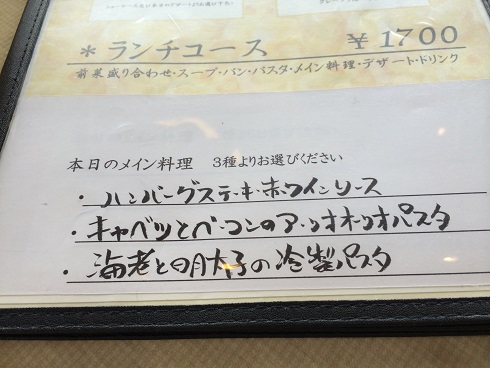 ＊ランチコース ￥1700
前菜盛り合わせ・スープ・パン・パスタ・メイン料理・デザート・ドリンク
本日のメイン料理 3種よりお選びください
・ハンバーグステーキホワインソース
・キャベツとベーコンのアーリオオーリオパスタ
・海老と明太子の冷製パスタ